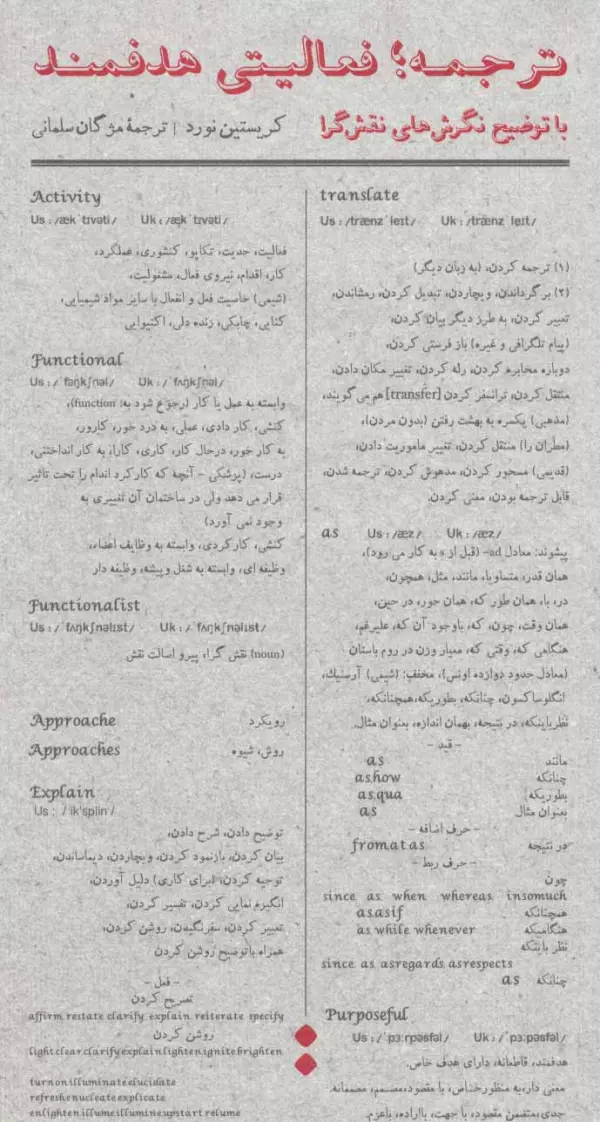 ترجمه؛ فعالیتی هدفمند
با توضیح نگرش‌های نقش‌گرا
کریستین نورد | ترجمهٔ مژگان سلمانی
translate
Us : /trænzˈleɪt/ Uk : /trænzˈleɪt/
(۱) ترجمه کردن، (به زبان دیگر)
(۲) بر گرداندن، ویچاردن، تبدیل کردن، رمشاندن،
تعبیر کردن، به طرز دیگر بیان کردن،
(پیام تلگرافی و غیره) باز فرستی کردن،
دوباره مخابره کردن، رله کردن، تغییر مکان دادن،
منتقل کردن، ترانسفر کردن [transfer] هم می گویند،
(مذهبی) یکسره به بهشت رفتن (بدون مردن)،
(مطران را) منتقل کردن، تغییر ماموریت دادن،
(قدیمی) مسحور کردن، مدهوش کردن، ترجمه شدن،
قابل ترجمه بودن، معنی کردن.
as Us : /æz/ Uk : /æz/
پیشوند: معادل ad- (قبل از s به کار می رود)،
همان قدر، متساویا، مانند، مثل، همچون،
در، با، همان طور که، همان جور، در حین،
همان وقت، چون، که، باوجود آن که، علیرغم،
هنگامی که، وقتی که، معیار وزن در روم باستان
(معادل حدود دوازده اونس)، مخفف: (شیمی) آرسنیك،
انگلوساکسون، چنانکه، بطوریکه، همچنانکه،
نظرباینکه، در نتیجه، بهمان اندازه، بعنوان مثال.
- قید -
مانند as
چنانکه as.how
بطوریکه as.qua
بعنوان مثال as
- حرف اضافه -
در نتیجه from.at.as
- حرف ربط -
چون
since as when whereas insomuch
همچنانکه as.as.if
هنگامیکه as while whenever
نظر باینکه
since as asregards asrespects
چنانکه as
Purposeful
Us : /ˈpɜːrpəsfəl/ Uk : /ˈpɜːpəsfəl/
هدفمند، قاطعانه، دارای هدف خاص.
معنی دار، به منظور خاص، با مقصود، مصمم، مصممانه.
جدی، متضمن مقصود، با جهت، بااراده، باعزم.
Activity
Us : /ækˈtɪvəti/ Uk : /ækˈtɪvəti/
فعالیت، جدیت، تکاپو، کنشوری، عملکرد،
کار، اقدام، نیروی فعال، مشغولیت،
(شیمی) خاصیت فعل و انفعال با سایر مواد شیمیایی،
کنایی، چابکی، زنده دلی، اکتیوایی
Functional
Us : /ˈfəŋkʃnəl/ Uk : /ˈfʌŋkʃnəl/
وابسته به عمل یا کار (رجوع شود به: function)،
کنشی، کار دادی، عملی، به درد خور، کارور،
به کار خور، درحال کار، کاری، کارا، به کار انداختنی،
درست، (پزشکی - آنچه که کارکرد اندام را تحت تاثیر
قرار می دهد ولی در ساختمان آن تغییری به
وجود نمی آورد)
کنشی، کارکردی، وابسته به وظایف اعضاء،
وظیفه ای، وابسته به شغل و پیشه، وظیفه دار
Functionalist
Us : /ˈfʌŋkʃnəlɪst/ Uk : /ˈfʌŋkʃnəlɪst/
(noun) نقش گرا، پیرو اسالت نقش
Approache رویکرد
Approaches روش، شیوه
Explain
Us : / ik'splin /
توضیح دادن، شرح دادن،
بیان کردن، بازنمود کردن، ویچاردن، دیماساندن،
توجیه کردن، (برای کاری) دلیل آوردن،
انگیزه نمایی کردن، تفسیر کردن،
تعبیر کردن، سفرنگیدن، روشن کردن،
همراه باتوضیح روشن کردن
- فعل -
تصریح کردن
affirm restate clarify explain reiterate specify
روشن کردن
light.clear.clarify.explain.lighten.ignite.brighten
turnon.illuminate.elucidate
refreshe.nucleate.explicate
enlighten.illume.illumine.upstart.relume